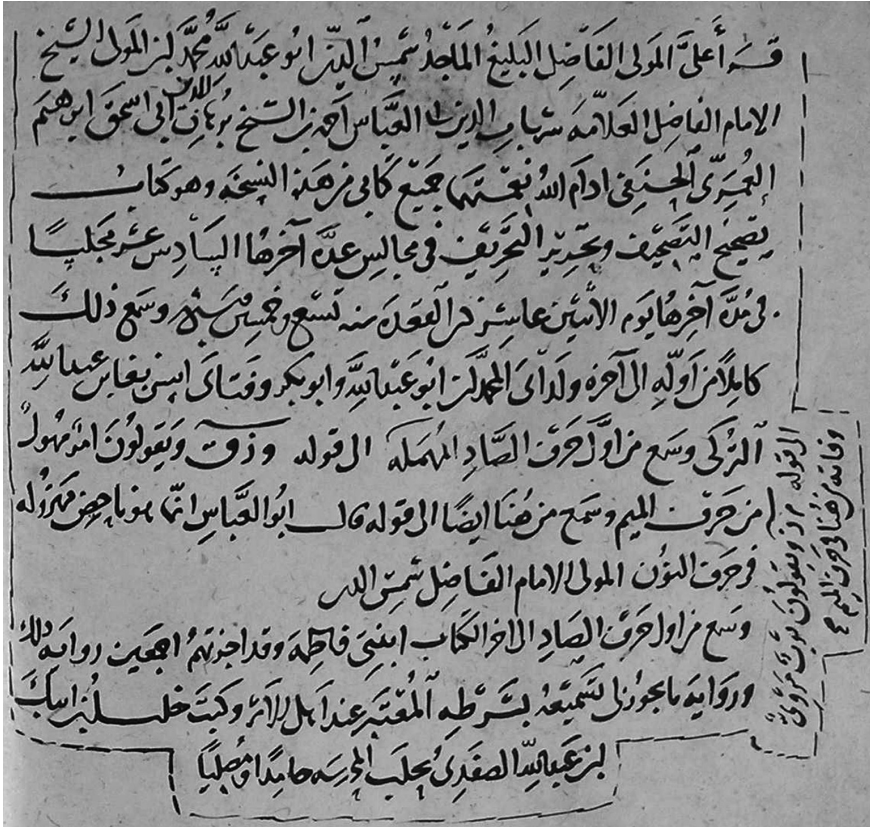 قرأ عليَّ المولى الفاضل البليغ الماجد شمس الدين ابو عبد الله محمد بن المولى الشيخ
الامام الفاضل العلامة شهاب الدين ابي العباس احمد بن الشيخ برهان الدين ابي اسحق ابرهيم
العمري الحنفي ادام الله نعمتهما جميع كتابي من هذه النسخة وهو كتاب
تصحيح التصحيف وتحرير التحريف في مجالس عدة آخرها السادس عشر مجلسا
في مدة آخرها يوم الاثنين عاشر ذي القعدة سنة تسع وخمسين وسبع مئة وسمع ذلك
كاملا من اوله الى آخره ولداي المحمدان ابو عبد الله وابو بكر وفتاي اسن بغا بن عبد الله
التركي وسمع من اول حرف الصاد المهملة الى قوله وذ ق ويقولون امر مهول
من حرف الميم وسمع من هنا ايضا الى قوله قال ابو العباس انما هو ناحض مهزوله
في حرف النون المولى الامام الفاضل شمس الدين
وسمع من اول حرف الصاد الى اخر الكتاب ابنتي فاطمة وقد اجزتهم اجمعين رواية ذلك
ورواية ما يجوز لي تسميعه بشرطه المعتبر عند اهل الاثر وكتب خليل بن ايبك
بن عبد الله الصفدي بحلب المحروسة حامدا ومصليا
الى قوله م ز و ويقولون ثوب مروي
وفاته من هنا الى حرف الميم